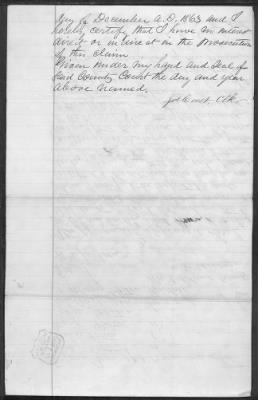 day of December A.D. 1863 and I
hereby certify that I have no interest
direct or indirect in the prosecution
of this claim
Given under my hand and Seal of
Said County Court the day and year
above named.
Clk.